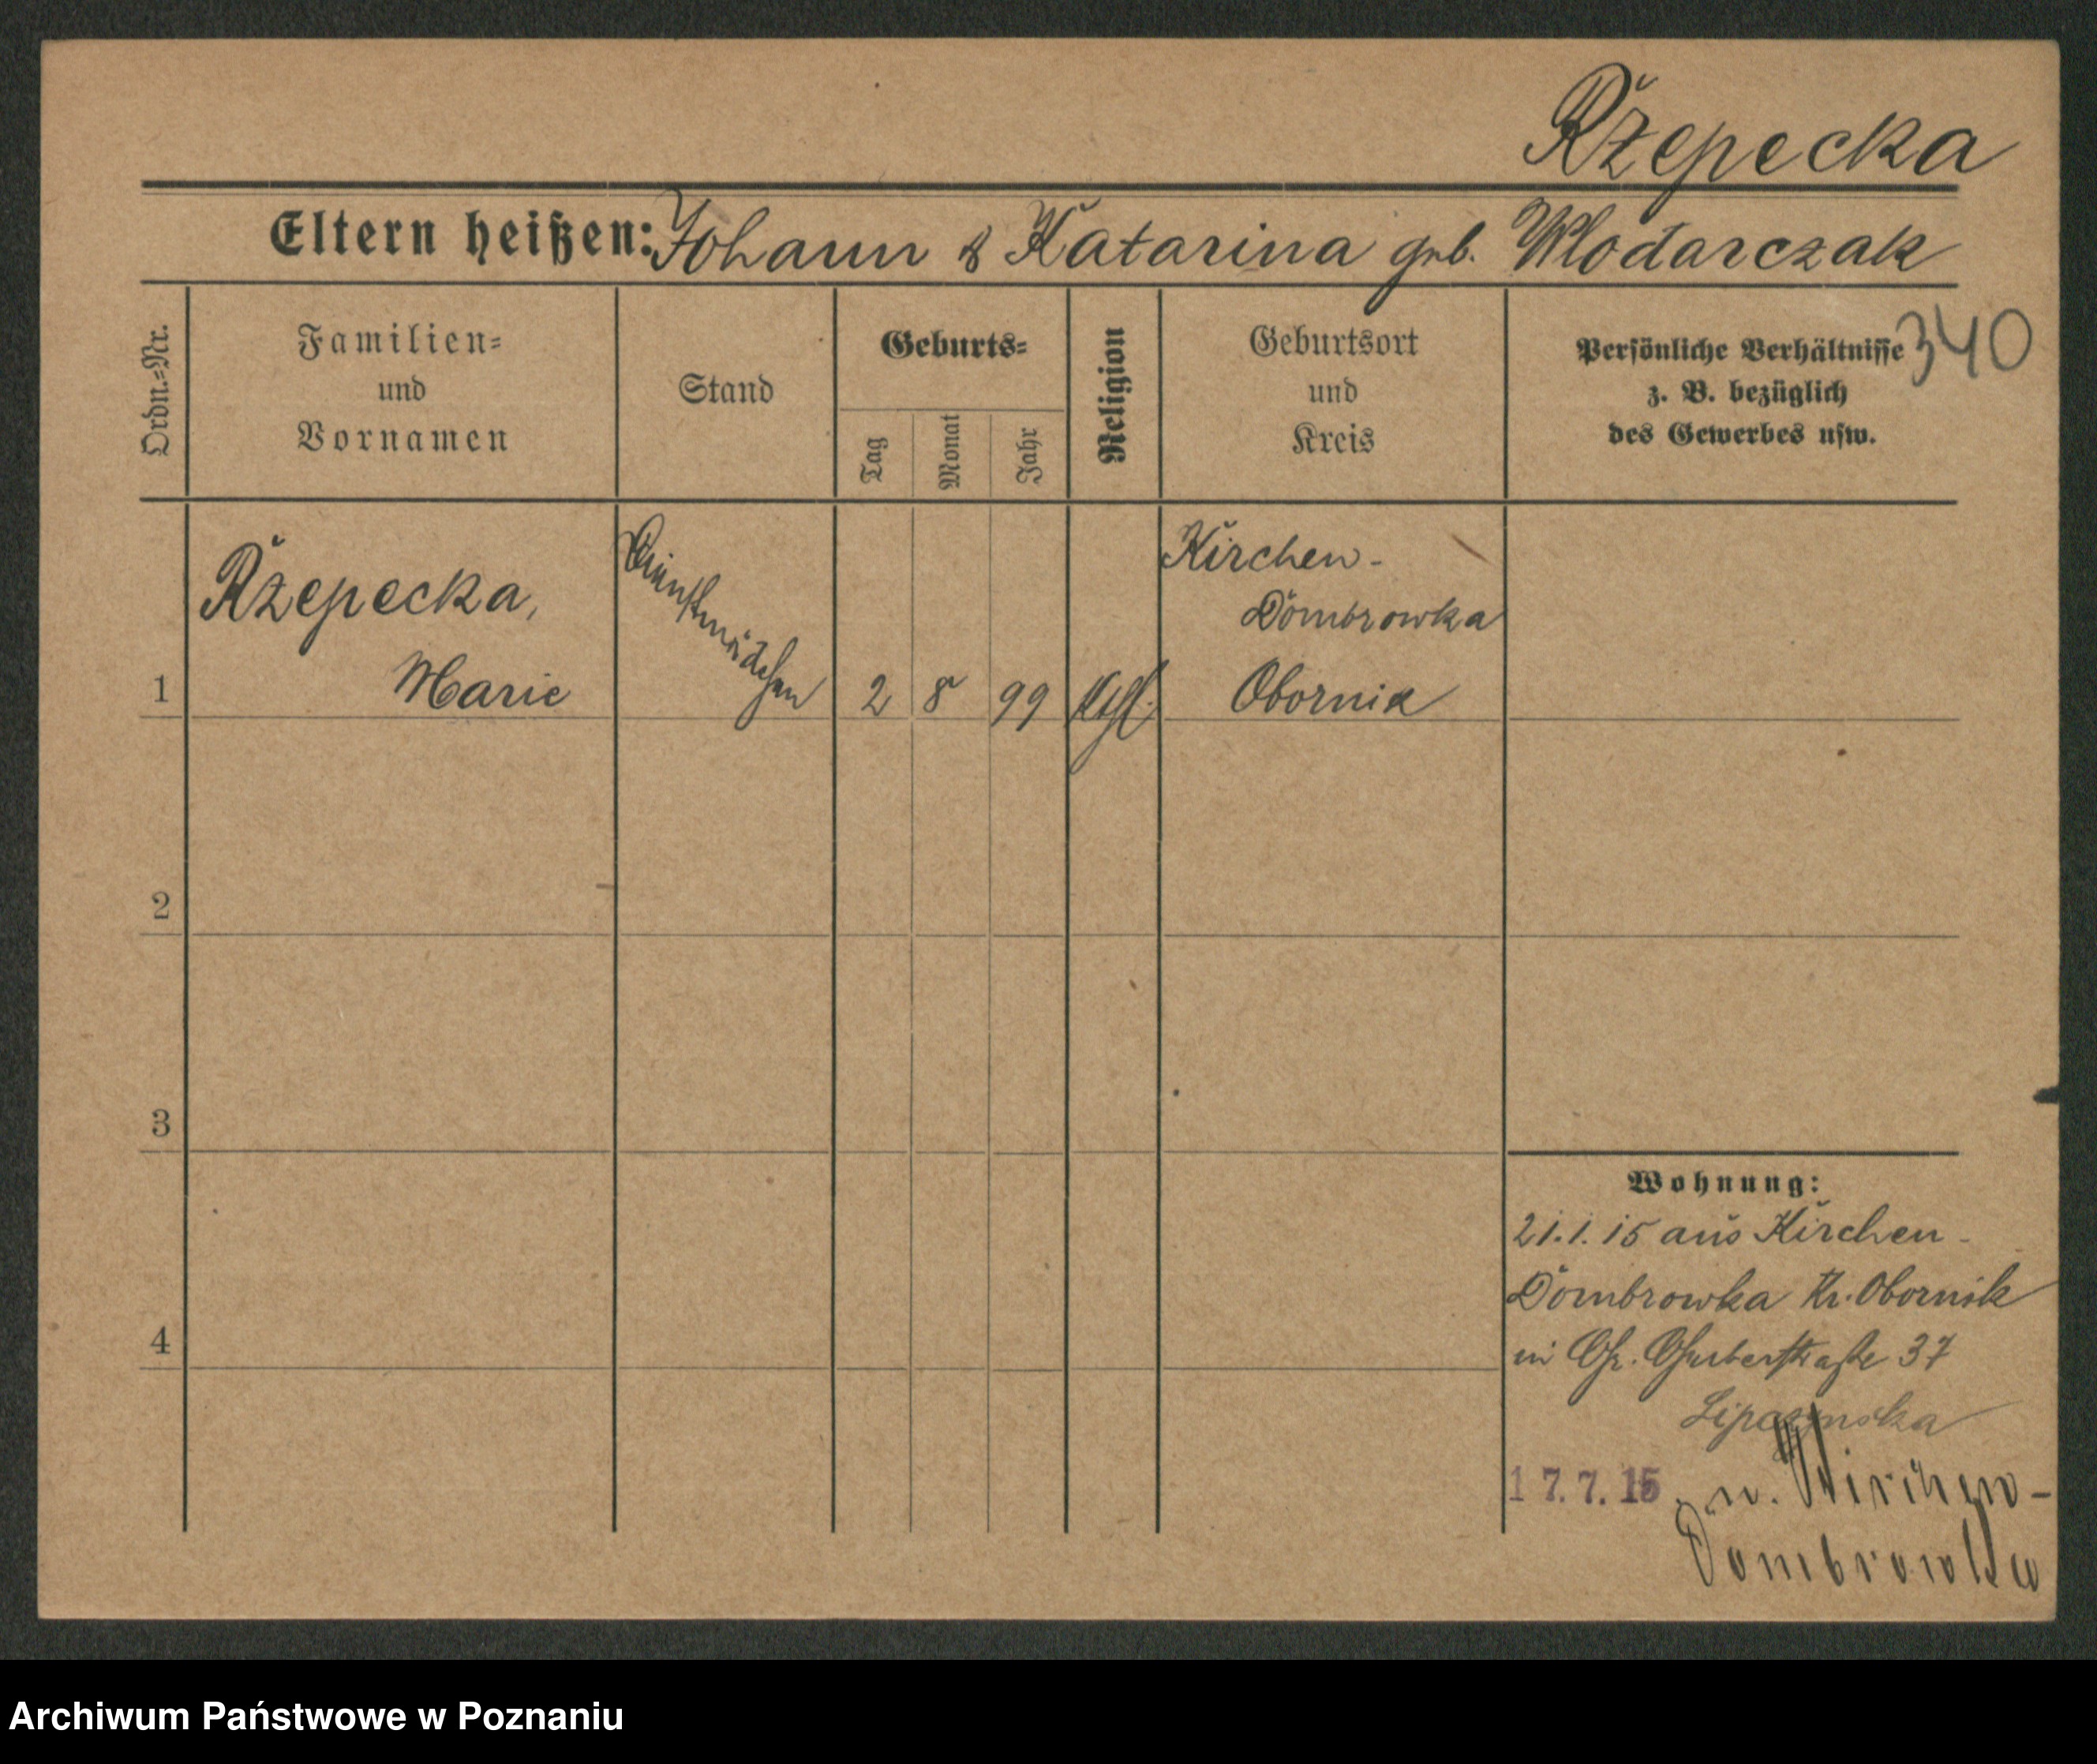 Rżepecka
Eltern heißen: Johann & Katarina geb. Wlodarczak
340
Ordn.=Nr.
Familien=
und
Vornamen
Stand
Geburts=
Tag
Monat
Jahr
Religion
Geburtsort
und
Kreis
Persönliche Verhältnisse
z. B. bezüglich
des Gewerbes usw.
1
Rżepecka,
Marie
Dienstmädchen
2
8
99
Kath.
Kirchen-
Dombrowka
Obornik
2
3
4
Wohnung:
21.1.15 aus Kirchen-
Dombrowka Kr. Obornik
in Gr. Gerberstraße 37
Lipczynska
17.7.15 n. Kirchen-
Dombrowka
Archiwum Państwowe w Poznaniu